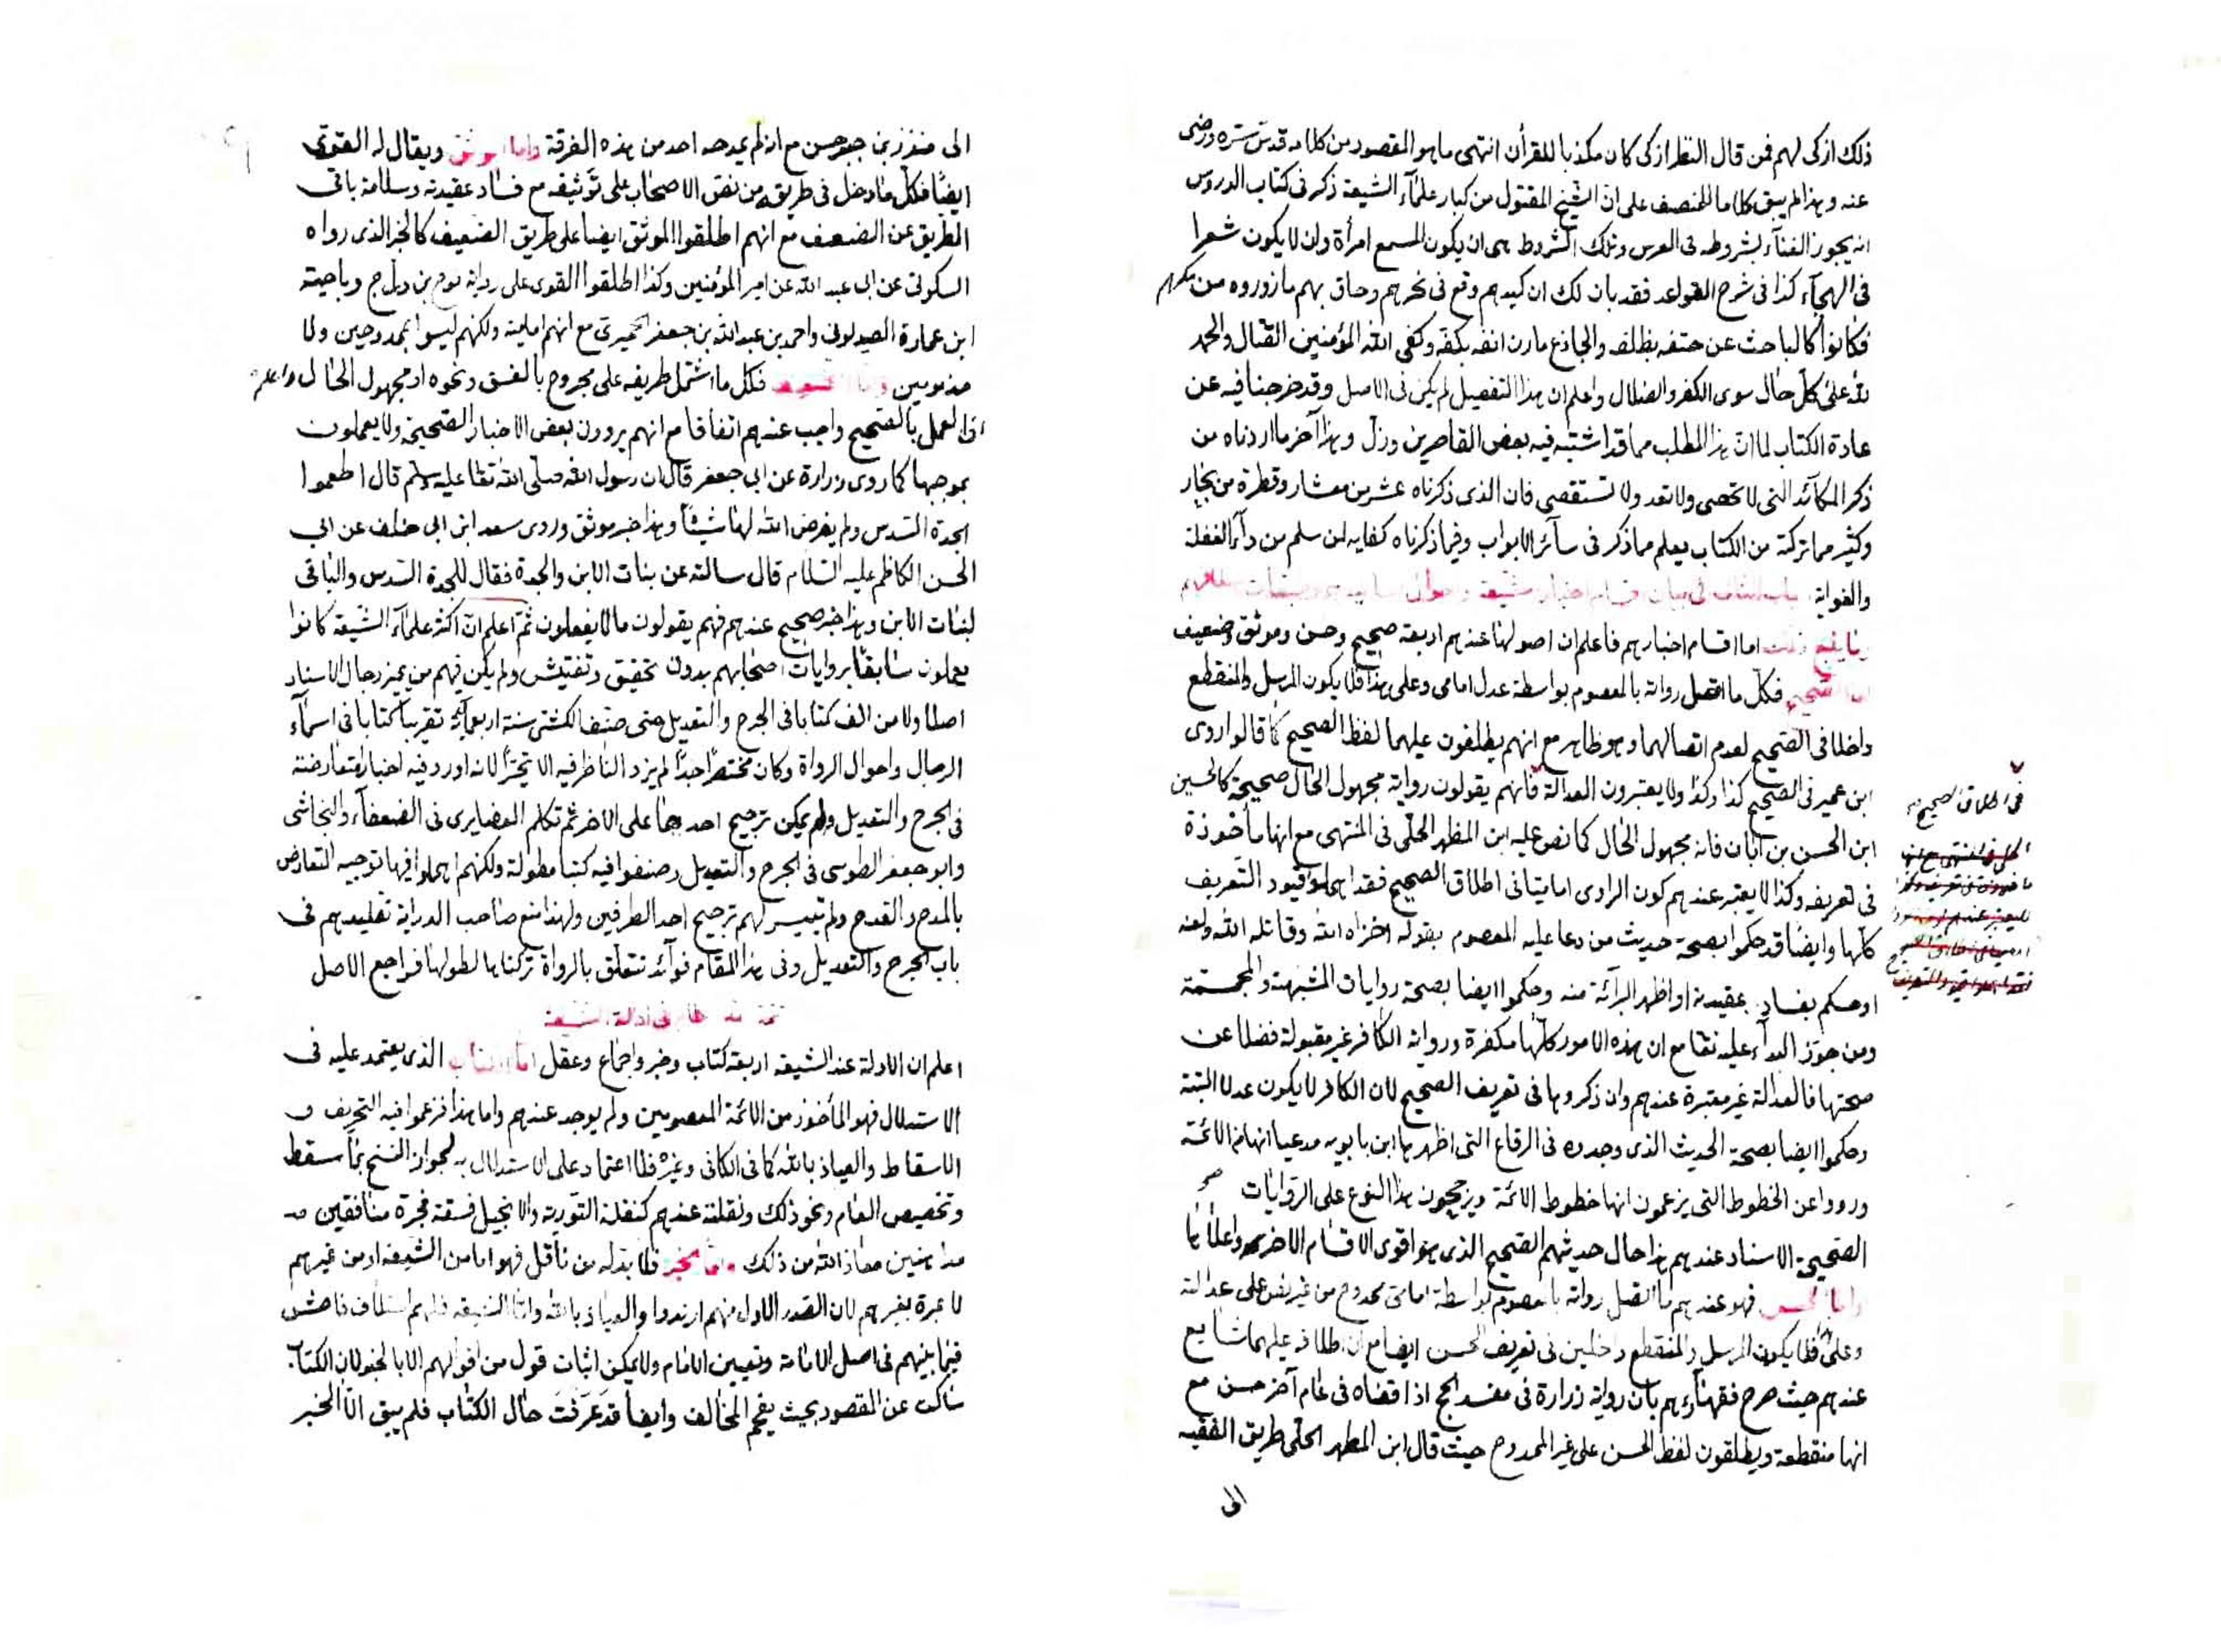 ذلك ازكى لهم فمن قال النظر ازكى كان مكذبا للقرأن انتهى ما هو المقصود من كلامه قدس سره ورضى
عنه وبهذا لم يبق كلاما للمنصف على ان الشيخ المقتول من كبار علمآء الشيعة ذكر فى كتاب الدروس
انه يجوز الغنآء بشروطه فى العرس وتلك الشروط هى ان يكون المسمع امرأة وان لا يكون شعرا
فى الهجآء كذا فى شرح القواعد فقد بان لك ان كيدهم وقع فى نحرهم وحاق بهم ما زوروه من مكرهم
فكانوا كالباحث عن حتفه بظلفه والجاذع مارن انفه بكفه وكفى الله المؤمنين القتال والحمد
لله على كل حال سوى الكفر والضلال واعلم ان هذا التفصيل لم يكن فى الاصل وقد خرجنا فيه عن
عادة الكتاب لما ان هذا المطلب مما قد اشتبه فيه بعض القاصرين وزل وهذا آخر ما اردناه من
ذكر المكآئد التى لا تحصى ولا تعد ولا تستقصى فان الذى ذكرناه عشر من معشار وقطرة من بحار
وكثير مما تركته من الكتاب يعلم مما ذكر فى سآئر الابواب وفيما ذكرناه كفاية لمن سلم من دآء الغفلة
والغواية باب الثالث فى بيان اقسام اخبار الشيعة واحوال
اما اقسام اخبارهم فاعلم ان اصولها عندهم اربعة صحيح وحسن وموثق وضعيف
اما الصحيح فكل ما اتصل رواته بالمعصوم بواسطة عدل امامى وعلى هذا فلا يكون المرسل والمنقطع
داخلا فى الصحيح لعدم اتصالهما وهو ظاهر مع انهم يطلقون عليهما لفظ الصحيح كما قالوا روى
ابن عمير فى الصحيح كذا وكذا ولا يعتبرون العدالة فانهم يقولون رواية مجهول الحال صحيحة كالحسين
ابن الحسن بن ابان فانه مجهول الحال كما نص عليه ابن المطهر الحلى فى المنتهى مع انها مأخوذة
فى تعريفه وكذا لا يعتبر عندهم كون الراوى اماميا فى اطلاق الصحيح فقد اهملوا قيود التعريف
كلها وايضا قد حكموا بصحة حديث من دعا عليه المعصوم بقوله اخزاه الله وقاتله الله ولعنه
او حكم بفساد عقيدته او اظهر البرآئة منه وحكموا ايضا بصحة روايات المشبهة والمجسمة
ومن جوز البدآء عليه تعا مع ان هذه الامور كلها مكفرة ورواية الكافر غير مقبولة فضلا عن
صحتها فالعدالة غير معتبرة عندهم وان ذكروها فى تعريف الصحيح لان الكافر لا يكون عدلا البتة
وحكموا ايضا بصحة الحديث الذى وجدوه فى الرقاع التى اظهرها ابن بابويه مدعيا انها من الائمة
ورووا عن الخطوط التى يزعمون انها خطوط الائمة ويرجحون هذا النوع على الروايات
الصحيحة الاسناد عندهم هذا حال حديثهم الصحيح الذى هو اقوى الاقسام الاخر واعلاها
واما الحسن فهو عندهم ما اتصل رواته بالمعصوم بواسطة امامى ممدوح من غير نص على عدالته
وعلى هذا فلا يكون المرسل والمنقطع داخلين فى تعريف الحسن ايضا مع ان اطلاقه عليهما شايع
عندهم حيث صرح فقهآؤهم بان رواية زرارة فى مفسد الحج اذا قضاه فى عام آخر حسن مع
انها منقطعة ويطلقون لفظ الحسن على غير الممدوح حيث قال ابن المطهر الحلى طريق الفقيه
الى
فى اطلاق الصحيح
الى منذر بن جيفر حسن مع انه لم يمدحه احد من هذه الفرقة واما الموثق ويقال له القوى
ايضا فكل ما دخل فى طريقه من نص الاصحاب على توثيقه مع فساد عقيدته وسلامة باقى
الطريق عن الضعف مع انهم اطلقوا الموثق ايضا على طريق الضعيف كالخبر الذى رواه
السكونى عن ابى عبد الله عن امير المؤمنين وكذا اطلقوا القوى على رواية نوح بن دراج وناجية
ابن عمارة الصيداوى واحمد بن عبد الله بن جعفر الحميرى مع انهم امامية ولكنهم ليسوا بممدوحين ولا
مذمومين واما الضعيف فكل ما اشتمل طريقه على مجروح بالفسق ونحوه او مجهول الحال واعلم
ان العمل بالصحيح واجب عندهم اتفاقا مع انهم يروون بعض الاخبار الصحيحة ولا يعملون
بموجبها كما روى زرارة عن ابى جعفر قال ان رسول الله صلى الله تعا عليه وسلم قال اطعموا
الجدة السدس ولم يفرض الله لها شيئا وهذا خبر موثق وروى سعد ابن ابى خلف عن ابى
الحسن الكاظم عليه السلام قال سالته عن بنات الابن والجدة فقال للجدة السدس والباقى
لبنات الابن وهذا خبر صحيح عندهم فهم يقولون ما لا يفعلون ثم اعلم ان اكثر علمآء الشيعة كانوا
يعملون سابقا بروايات اصحابهم بدون تحقيق وتفتيش ولم يكن فيهم من يميز رجال الاسناد
اصلا ولا من الف كتابا فى الجرح والتعديل حتى صنف الكشى سنة اربعمائة تقريبا كتابا فى اسمآء
الرجال واحوال الرواة وكان مختصرا جدا لم يزد الناظر فيه الا تحيرا لانه اورد فيه اخبارا متعارضة
فى الجرح والتعديل ولم يمكن ترجيح احدهما على الاخر ثم تكلم الغضايرى فى الضعفآء والنجاشى
وابو جعفر الطوسى فى الجرح والتعديل وصنفوا فيه كتبا مطولة ولكنهم اهملوا فيها توجيه التعارض
بالمدح والقدح ولم يتيسر لهم ترجيح احد الطرفين ولهذا منع صاحب الدراية تقليدهم فى
باب الجرح والتعديل وفى هذا المقام فوآئد تتعلق بالرواة تركناها لطولها فراجع الاصل
فى ادلة الشيعة
اعلم ان الادلة عند الشيعة اربعة كتاب وخبر واجماع وعقل اما الكتاب الذى يعتمد عليه فى
الاستدلال فهو المأخوذ من الائمة المعصومين ولم يوجد عندهم واما هذا فزعموا فيه التحريف و
الاسقاط والعياذ بالله كما فى الكافى وغيره فلا اعتماد على الاستدلال به لجواز النسخ بما سقط
وتخصيص العام ونحو ذلك ونقلته عندهم كنقلة التورية والانجيل فسقة فجرة منافقين
مداهنين معاذ الله من ذلك واما الخبر فلا بد له من ناقل فهو اما من الشيعة او من غيرهم
لا عبرة بغيرهم لان الصدر الاول منهم ارتدوا والعياذ بالله واما الشيعة فلهم اختلاف فاحش
فيما بينهم فى اصل الامامة وتعيين الامام ولا يمكن اثبات قول من اقوالهم الا بالخبر لان الكتاب
ساكت عن المقصود بحيث يفحم المخالف وايضا قد عرفت حال الكتاب فلم يبق الا الخبر